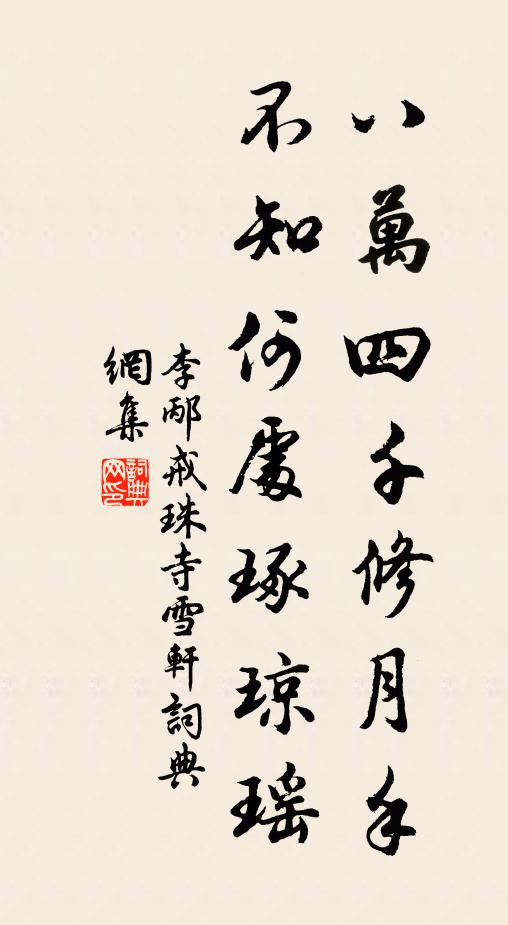 八萬四千修月手
不知何處琢瓊瑤
李邴戒珠寺雪軒詞典
網集
詞典
網印